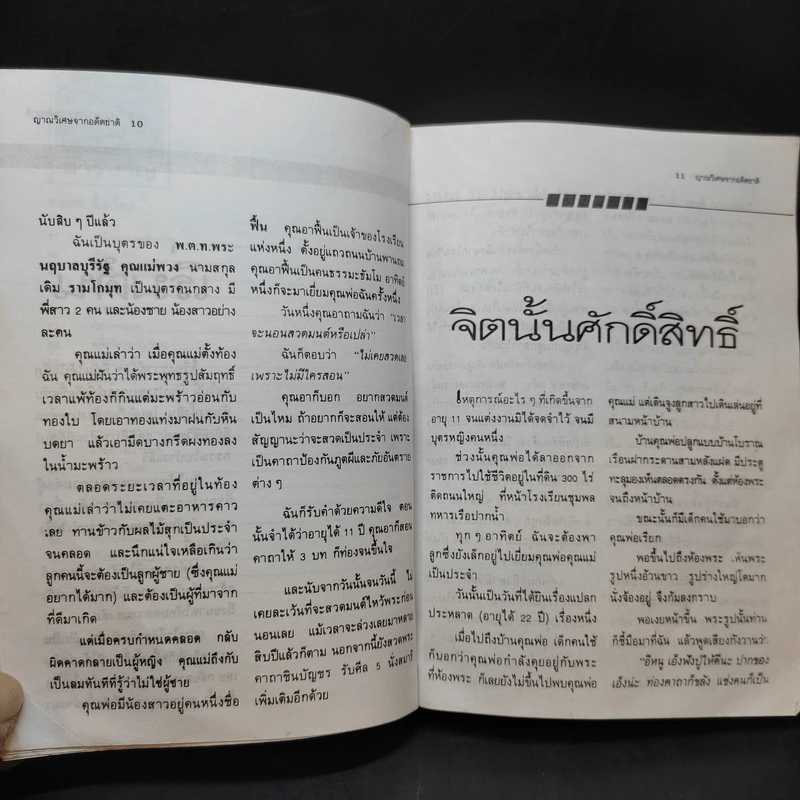 ญาณวิเศษจากอดีตชาติ 10
นับสิบ ๆ ปีแล้ว
ฉันเป็นบุตรของ พ.ต.ท.พระ
นฤบาลบุรีรัฐ คุณแม่พวง นามสกุล
เดิม รามโกมุท เป็นบุตรคนกลาง มี
พี่สาว 2 คน และน้องชาย น้องสาวอย่าง
ละคน
คุณแม่เล่าว่า เมื่อคุณแม่ตั้งท้อง
ฉัน คุณแม่ฝันว่าได้พระพุทธรูปสัมฤทธิ์
เวลาแพ้ท้องก็กินแต่มะพร้าวอ่อนกับ
ทองใบ โดยเอาทองแท่งมาฝนกับหิน
บดยา แล้วเอามีดบางกรีดผงทองลง
ในน้ำมะพร้าว
ตลอดระยะเวลาที่อยู่ในท้อง
คุณแม่เล่าว่าไม่เคยแตะอาหารคาว
เลย ทานข้าวกับผลไม้สุกเป็นประจำ
จนคลอด และนึกแน่ใจเหลือเกินว่า
ลูกคนนี้จะต้องเป็นลูกผู้ชาย (ซึ่งคุณแม่
อยากได้มาก) และต้องเป็นผู้ที่มาจาก
ที่ดีมาเกิด
แต่เมื่อครบกำหนดคลอด กลับ
ผิดคาดกลายเป็นผู้หญิง คุณแม่ถึงกับ
เป็นลมทันทีที่รู้ว่าไม่ใช่ผู้ชาย
คุณพ่อมีน้องสาวอยู่คนหนึ่งชื่อ
ฟื้น คุณอาฟื้นเป็นเจ้าของโรงเรียน
แห่งหนึ่ง ตั้งอยู่แถวถนนบ้านพานถม
คุณอาฟื้นเป็นคนธรรมะธัมโม อาทิตย์
หนึ่งก็จะมาเยี่ยมคุณพ่อฉันครั้งหนึ่ง
วันหนึ่งคุณอาถามฉันว่า "เวลา
จะนอนสวดมนต์หรือเปล่า"
ฉันก็ตอบว่า "ไม่เคยสวดเลย
เพราะไม่มีใครสอน"
คุณอาก็บอก อยากสวดมนต์
เป็นไหม ถ้าอยากก็จะสอนให้ แต่ต้อง
สัญญานะว่าจะสวดเป็นประจำ เพราะ
เป็นคาถาป้องกันภูตผีและภัยอันตราย
ต่าง ๆ
ฉันก็รับคำด้วยความดีใจ ตอน
นั้นจำได้ว่าอายุได้ 11 ปี คุณอาก็สอน
คาถาให้ 3 บท ก็ท่องจนขึ้นใจ
และนับจากวันนั้นจนวันนี้ ไม่
เคยละเว้นที่จะสวดมนต์ไหว้พระก่อน
นอนเลย แม้เวลาจะล่วงเลยมาหลาย
สิบปีแล้วก็ตาม นอกจากนี้ยังสวดพระ
คาถาชินบัญชร รับศีล 5 นั่งสมาธิ
เพิ่มเติมอีกด้วย
11 ญาณวิเศษจากอดีตชาติ
จิตนั้นศักดิ์สิทธิ์
เหตุการณ์อะไร ๆ ที่เกิดขึ้นจาก
อายุ 11 จนแต่งงานมิได้จดจำไว้ จนมี
บุตรหญิงคนหนึ่ง
ช่วงนั้นคุณพ่อได้ลาออกจาก
ราชการไปใช้ชีวิตอยู่ในที่ดิน 300 ไร่
ติดถนนใหญ่ ที่หน้าโรงเรียนชุมพล
ทหารเรือปากน้ำ
ทุก ๆ อาทิตย์ ฉันจะต้องพา
ลูกซึ่งยังเล็กอยู่ไปเยี่ยมคุณพ่อคุณแม่
เป็นประจำ
วันนั้นเป็นวันที่ได้ยินเรื่องแปลก
ประหลาด (อายุได้ 22 ปี) เรื่องหนึ่ง
เมื่อไปถึงบ้านคุณพ่อ เด็กคนใช้
ก็บอกว่าคุณพ่อกำลังคุยอยู่กับพระ
ที่ห้องพระ ก็เลยยังไม่ขึ้นไปพบคุณพ่อ
คุณแม่ แต่เดินจูงลูกสาวไปเดินเล่นอยู่ที่
สนามหน้าบ้าน
บ้านคุณพ่อปลูกแบบบ้านโบราณ
เรือนฝากระดานสามหลังแฝด มีประตู
ทะลุมองเห็นตลอดตรงกัน ตั้งแต่ห้องพระ
จนถึงหน้าบ้าน
ขณะนั้นก็มีเด็กคนใช้มาบอกว่า
คุณพ่อเรียก
พอขึ้นไปถึงห้องพระ เห็นพระ
รูปหนึ่งอ้วนขาว รูปร่างใหญ่โตมาก
นั่งจ้องอยู่ จึงก้มลงกราบ
พอเงยหน้าขึ้น พระรูปนั้นท่าน
ก็ชี้มือมาที่ฉัน แล้วพูดเสียงกังวานว่า
"อีหนู เอ็งฟังปู่ให้ดีนะ ปากของ
เอ็งน่ะ ท่องคาถาก็ขลัง แช่งคนก็เป็น